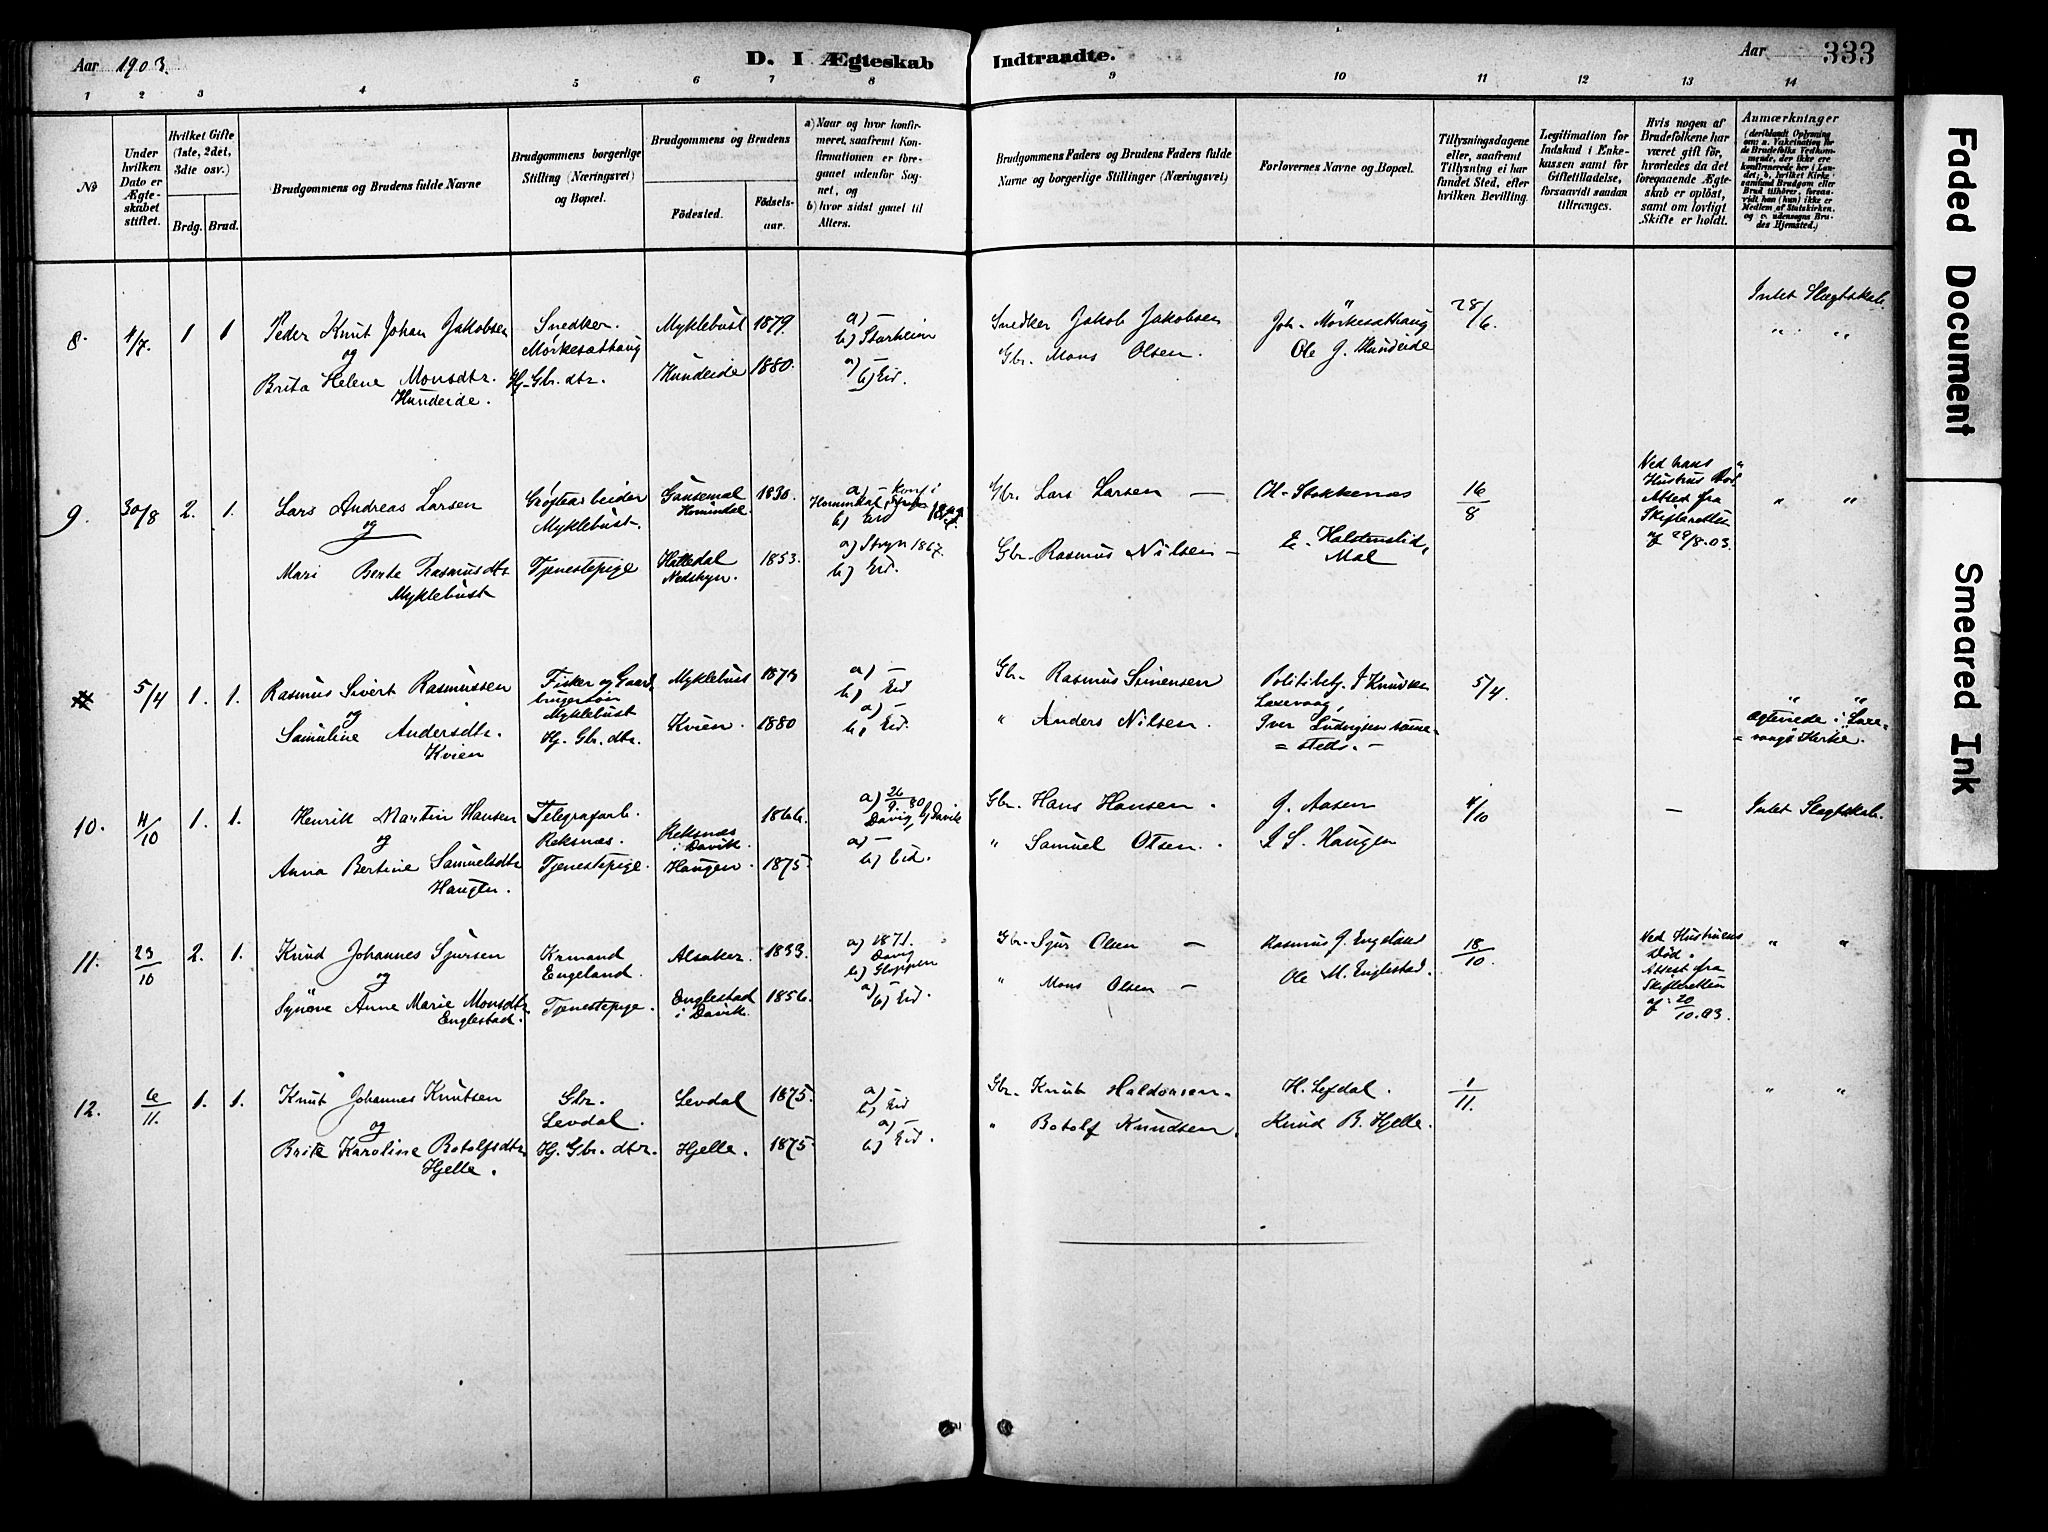 Aar 1903.
D. I Ægteskab
Indtraadte.
Aar
333
1 2 3 4 5 6 7 8 9 10 11 12 13 14
No
Under hvilken Dato er Ægteskabet stiftet.
Hvilket Gifte (1ste, 2det, 3die osv.)
Brdg. Brud.
Brudgommens og Brudens fulde Navne
Brudgommens borgerlige Stilling (Næringsvei) og Bopæl.
Brudgommens og Brudens
Födested.
Födselsaar.
a) Naar og hvor konfirmeret, saafremt Konfirmationen er foregaaet udenfor Sognet, og
b) hvor sidst gaaet til Alters.
Brudgommens Faders og Brudens Faders fulde Navne og borgerlige Stillinger (Næringsvei)
Forlovernes Navne og Bopæl.
Tillysningsdagene eller, saafremt Tillysning ei har fundet Sted, efter hvilken Bevilling.
Legitimation for Indskud i Enkekassen samt for Giftetilladelse, forsaavidt saadan tiltrænges.
Hvis nogen af Brudefolkene har været gift för, hvorledes da det foregaaende Ægteskab er oplöst, samt om lovligt Skifte er holdt.
Anmærkninger
(deriblandt Oplysning om: a. Vakcination for de Brudefolks Vedkommende, der ikke ere konfirmerede her i Landet; b. hvilket Kirkesamfund Brudgom eller Brud tilhörer, forsaavidt han (hun) ikke er Medlem af Statskirken. og c. udensogns Brudes Hjemsted.)
8. 4/7. 1 1 Peder Knut Johan Jakobsen Snedker. Myklebust 1879 a) – Snedker Jakob Jakobsen Joh. Mörkesathaug 28/6. Intet Slægtskab.
og Mørkesathaug b) Starheim " "
Brita Helene Monsdtr. Hj. Gbr. dtr. Hundeide 1880. a) – Gbr. Mons Olsen. Ole J. Hundeide
Hundeide. b) Eid.
9. 30/8 2. 1. Lars Andreas Larsen Grøftearbeider 1830. a) – Konf i Gbr. Lars Larsen – Ol. Stokkenæs 16/8 Ved hans Hustrus Død " "
og Myklebust. Hornindal b) Eid Attest fra Skifteretten af 29/8.03.
Mari Berte Rasmusdtr Tjenestepige 1853. a) Stryn 1867. Gbr. Rasmus Nilsen –
Myklebust Nedstryn. b) Eid. Mal
5/4 1. 1. Rasmus Sivert Rasmussen Fisker og Gaardbrugersøn Myklebust 1873 a) – Gbr. Rasmus Simensen Politibetj. I Knudsen 5/4. " "
og Myklebust b) Eid Laxevaag,
Samuline Andersdtr. Hj. Gbr. dtr. Kvien. 1880 a) – " Anders Nilsen. Iver Ludvigsen sammesteds. –
Kvien b) Eid. ægteviede i Laxevaags Kirke.
10. 4/10 1. 1. Henrik Martin Hansen Telegrafarb. Reksnæs i Davik. 1866. a) 26/9.80 Gbr. Hans Hansen. J. Aasen 4/10 – Intet Slægtskab.
og Reksnæs. Davig, b) Davik
Anna Bertine Samuelsdtr Tjenestepige. Haugen. 1875. a) – " Samuel Olsen. I S. Haugen
Haugen. b) Eid.
11. 23/10 2. 1. Knud Johannes Sjursen Krmand Alsaker. 1833. a) 1871. Gbr. Sjur Olsen – Rasmus J. Engeland 18/10. Ved Hustruens Død. " "
og Engeland. Davig b) Gloppen Attest fra Skifteretten af 20/10.03.
Synøve Anne Marie Monsdtr. Tjenestepige. Englestad i Davik. 1856. a) – " Mons Olsen – Ole M. Englestad.
Englestad. b) Eid.
12. 6/11. 1. 1. Knut Johannes Knutsen Gbr. Levdal 1875. a) – Gbr. Knut Haldorsen. H. Lefdal. 1/11. " "
og Levdal. b) Eid
Brite Karoline Botolfsdtr Hj. Gbr. dtr. Hjelle. 1875. a) – " Botolf Knudsen. Knud B. Hjelle.
Hjelle. b) Eid.
Faded Document
Smeared Ink